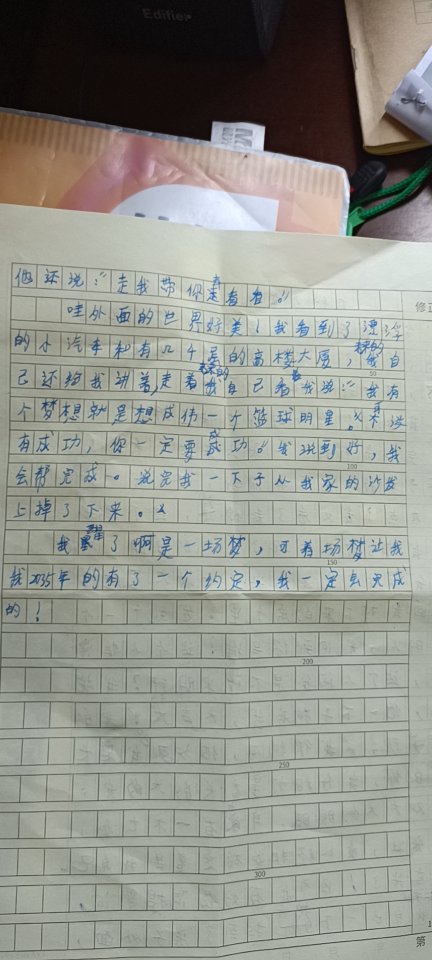 Edifier
他还说:“走我带你去看看。”
修正
哇外面的世界好美！我看到了漂浮
的小汽车和有几千层的高楼大厦，未来的我自
己还给我讲着,走着未来的我自己看着我说:“我有
50
个梦想就是想成伟一个篮球明星。”“不没
有成功，你一定要成功。”我说到好，我
100
会帮完成。说完我一下子从我家的沙发
上掉了下来。
我醒了啊是一场梦，可着场梦让我
150
我2035年的有了一个约定，我一定会完成
的！
200
250
300
第